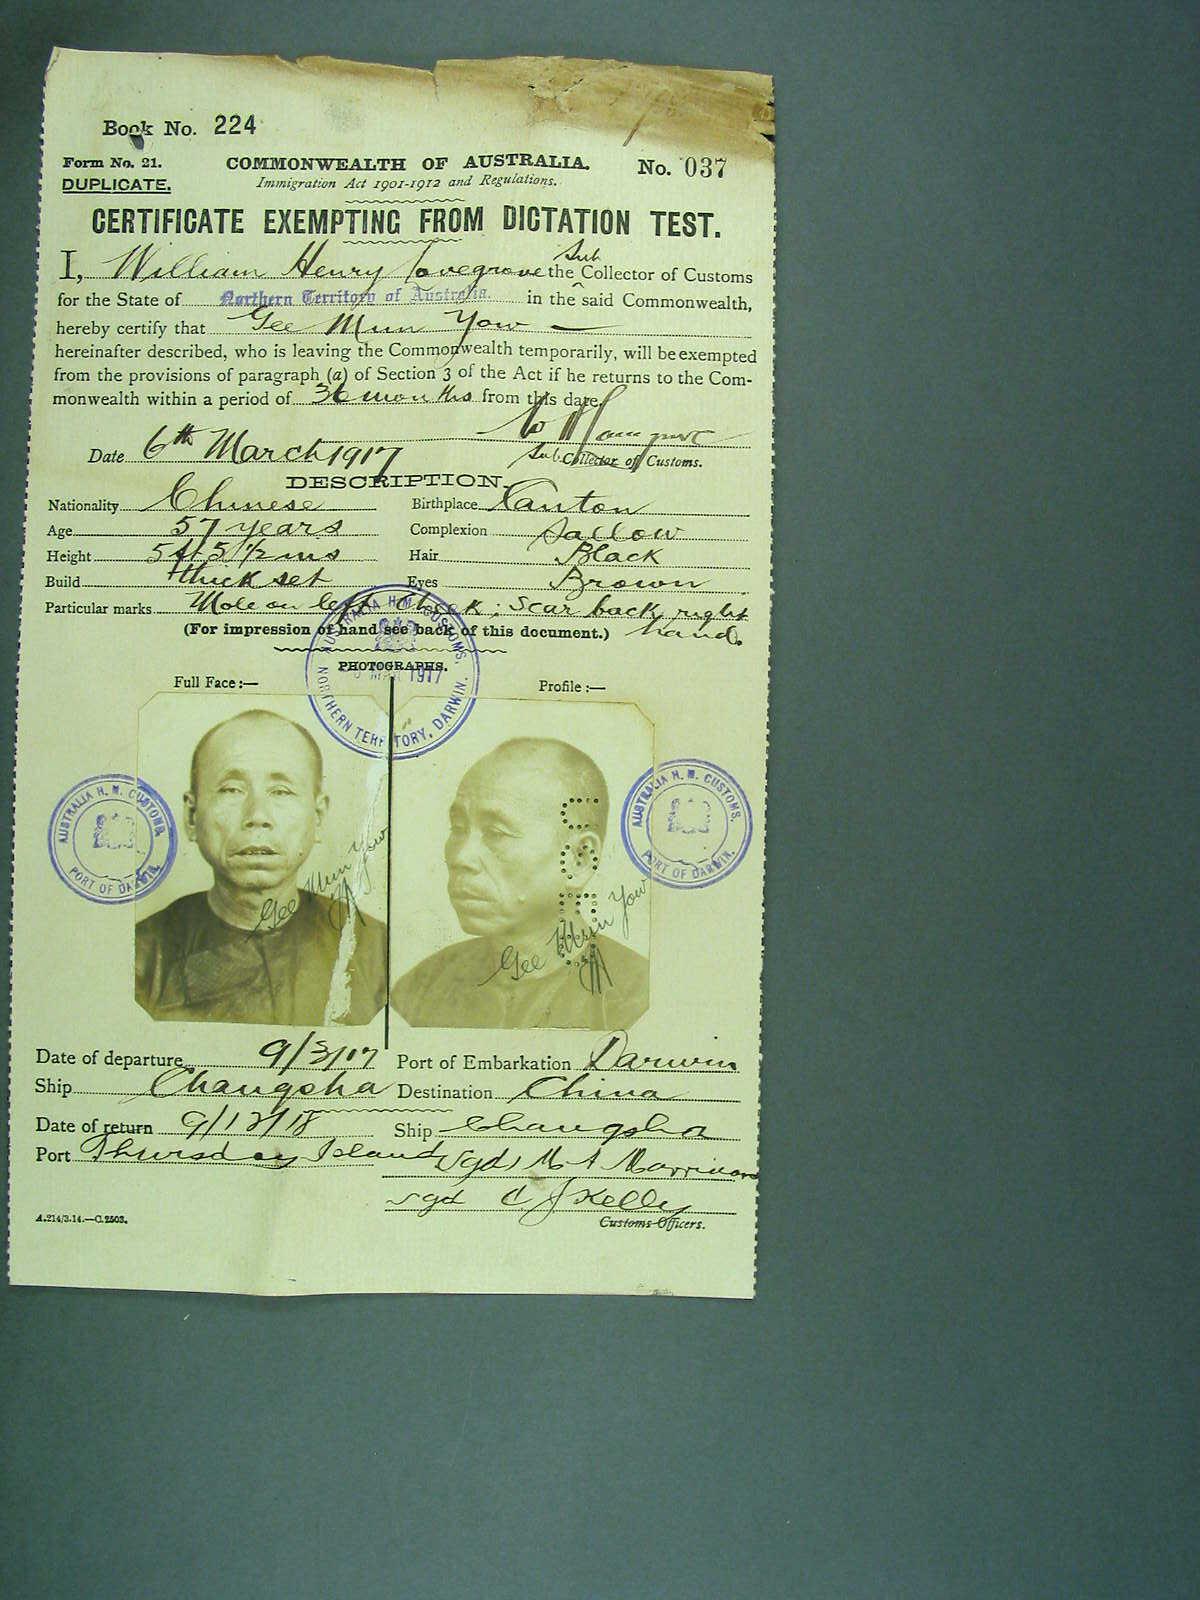 Book No. 224
Form No. 21.
COMMONWEALTH OF AUSTRALIA.
No. 037
DUPLICATE.
Immigration Act 1901-1912 and Regulations.
CERTIFICATE EXEMPTING FROM DICTATION TEST.
I, William Henry Lovegrove the Sub Collector of Customs
for the State of Northern Territory of Australia. in the said Commonwealth,
hereby certify that Gee Mun Yow
hereinafter described, who is leaving the Commonwealth temporarily, will be exempted
from the provisions of paragraph (a) of Section 3 of the Act if he returns to the Com-
monwealth within a period of 36 months from this date.
Date 6th March 1917
Sub Collector of Customs.
DESCRIPTION.
Nationality Chinese Birthplace Canton
Age 57 years Complexion Sallow
Height 5 ft 5 1/2 ins Hair Black
Build thick set Eyes Brown
Particular marks Mole on left cheek; scar back right
(For impression of hand see back of this document.) hand.
AUSTRALIA H.M. CUSTOMS.
NORTHERN TERRITORY, DARWIN.
MAR 1917
PHOTOGRAPHS.
Full Face:—
Profile:—
AUSTRALIA H. M. CUSTOMS.
PORT OF DARWIN.
AUSTRALIA H. M. CUSTOMS.
PORT OF DARWIN.
Gee Mun Yow
Gee Mun Yow
Date of departure 9/3/17 Port of Embarkation Darwin
Ship Changsha Destination China
Date of return 9/12/18 Ship Changsha
Port Thursday Island
sgd C J Kelly
A.214/3.14.—C.2503.
Customs Officers.